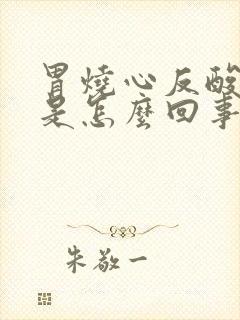 胃燒心反酸
是怎麼回事
朱敬一